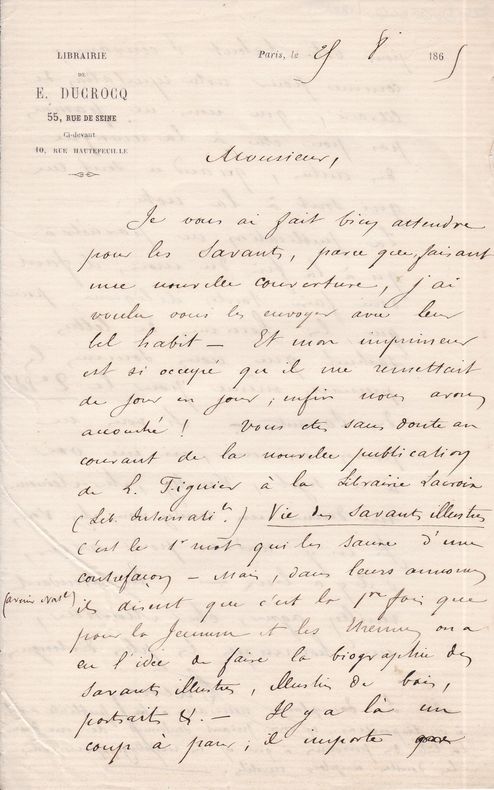 LIBRAIRIE
DE
E. DUCROCQ
55, RUE DE SEINE
Ci-devant
10, RUE HAUTEFEUILLE
Paris, le 25 8 1865
Monsieur,
Je vous ai fait bien attendre
pour les Savants, parce que, faisant
une nouvelle couverture, j'ai
voulu vous les envoyer avec leur
bel habit — Et mon imprimeur
est si occupé qu'il me remettait
de jour en jour ; enfin nous avons
accouché ! Vous etes sans doute au
courant de la nouvelle publication
de L. Figuier à la Librairie Lacroix
(Lib. Internati.le) Vie des Savants illustres
c'est le 1er mot qui les sauve d'une
contrefaçon — Mais, dans leurs annonces
(avenir Natal)
ils disent que c'est la 1re fois que
pour la Jeunesse et les Etrennes on a
eu l'idée de faire la biographie des
savants illustres, illustrés de bois,
portraits &. — Il y a là un
coup à parer ; il importe